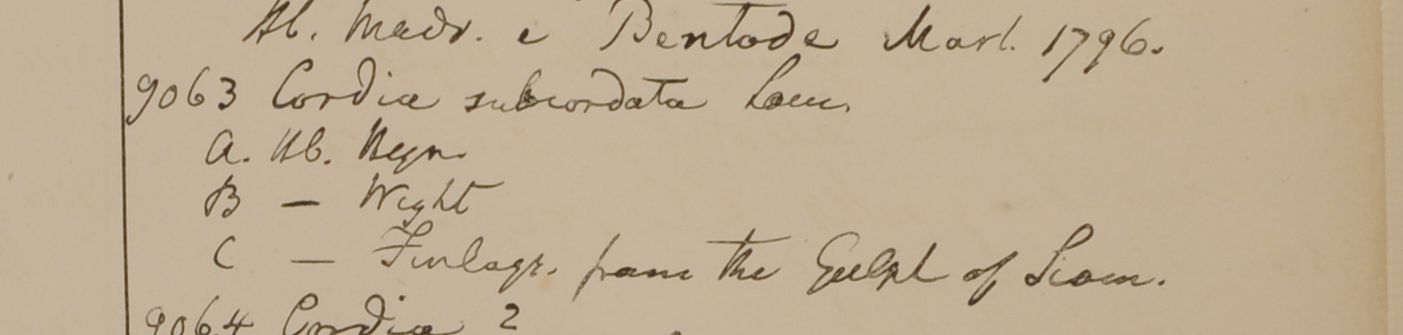 Hb. Madr. e Bentode Mart. 1796.
9063 Cordia subcordata Lam.
A. Hb. Heyn.
B — Wight
C — Finlays. from the Gulph of Siam.
9064 Cordia 2